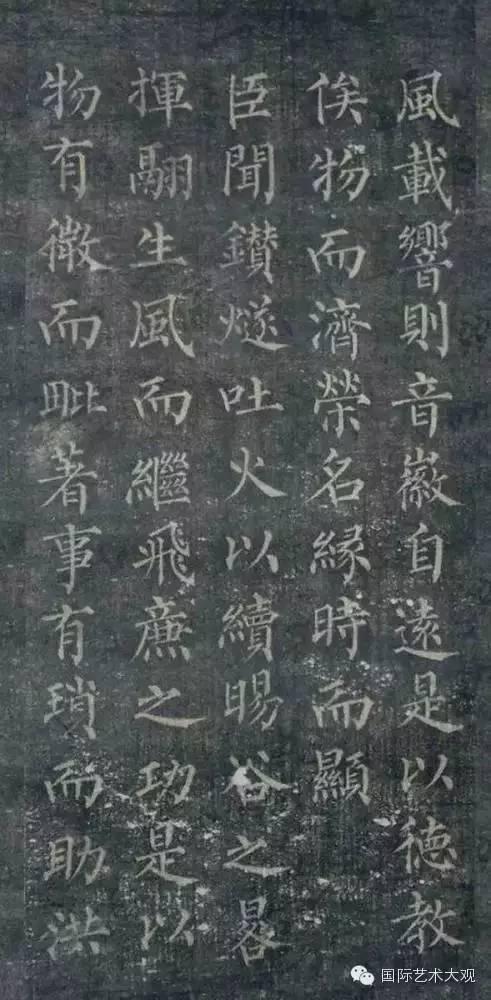 風載響則音徽自遠是以德教
俟物而濟榮名緣時而顯
臣聞鑽燧吐火以續暘谷之晷
揮翮生風而繼飛廉之功是以
物有微而毗著事有瑣而助洪
国际艺术大观